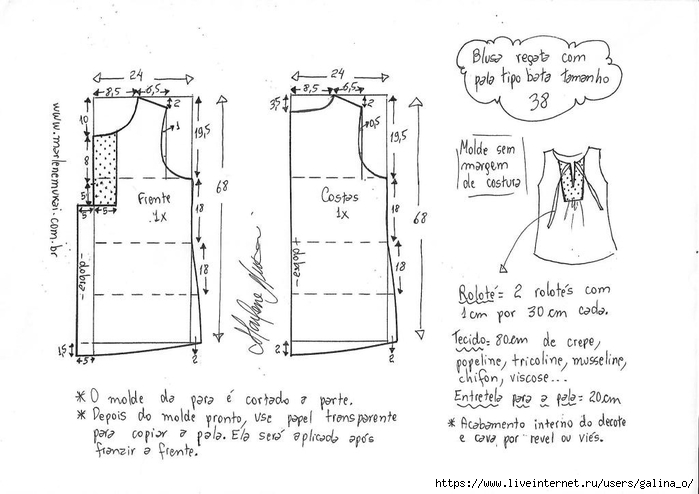 Blusa regata com
pala tipo bata tamanho
38
24
8,5 6,5
2
10
1
19,5
8
5
5 5
Frente
1x
68
18
18
-dobra-
1,5
5
2
www.marlenemukai.com.br
24
8,5 6,5
3,5
2
0,5
19,5
Costas
1x
68
18
18
-dobra-
2
2
Marlene Mukai
Molde sem
margem
de costura
Roloté = 2 rolotês com
1cm por 30cm cada.
Tecido= 80cm de crepe,
popeline, tricoline, musseline,
chifon, viscose...
Entretela para a pala= 20cm
* Acabamento interno do decote
e cava por revel ou viés.
* O molde da para é cortado a parte.
* Depois do molde pronto, use papel transparente
para copiar a pala. Ela será aplicada após
franzir a frente.
https://www.liveinternet.ru/users/galina_o/